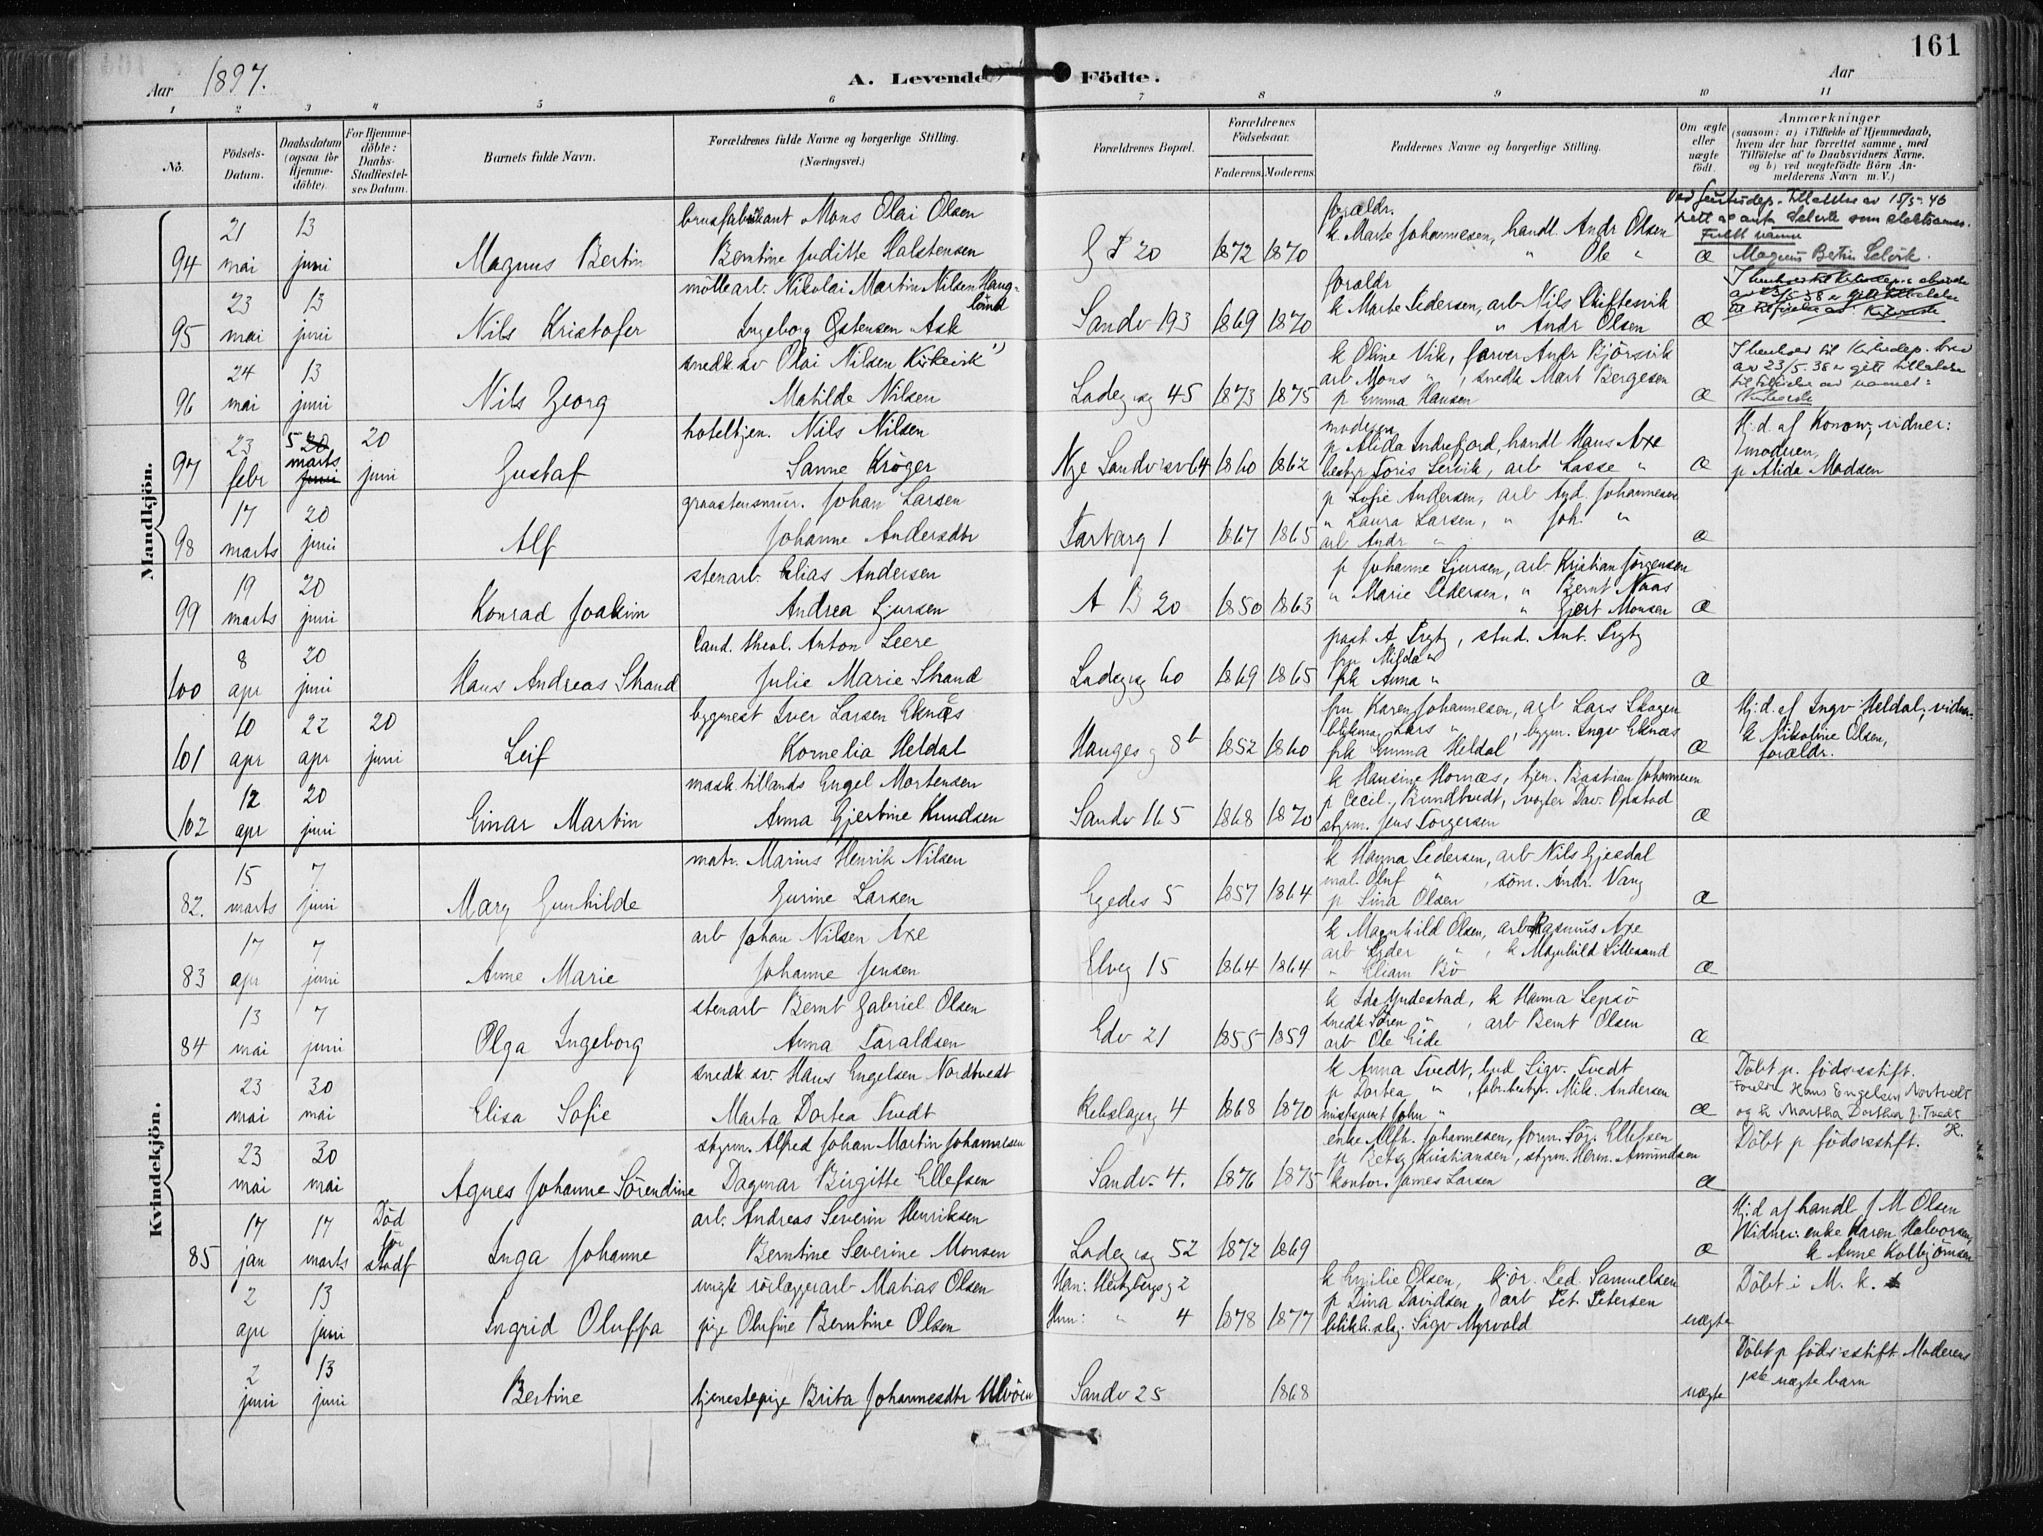 161
Aar 1897. A. Levende Födte. Aar
1 2 3 4 5 6 7 8 9 10 11
No. Födsels-Datum. Daabsdatum (ogsaa for Hjemme-döbte). For Hjemme-döbte: Daabs-Stadfæstel-ses Datum. Barnets fulde Navn. Forældrenes fulde Navne og borgerlige Stilling. (Næringsvei.) Forældrenes Bopæl. Forældrenes Födselsaar. Faderens. Moderens. Faddernes Navne og borgerlige Stilling. Om ægte eller uægte födt. Anmærkninger (saasom: a) i Tilfælde af Hjemmedaab, hvem der har forrettet samme, med Tilföielse af to Daabsvidners Navne. og b) ved uægtefödte Börn Anmelderens Navn m. V.)
Mandkjön.
94 21 mai 13 juni Magnus Bertin brusfabrikant Mons Olai Olsen
Berntine Juditte Halstensen 20 1872 1870 foraldr.
k Marte Johannesen, handl. Andr Olsen
" Ole " Æ Fullt navn
Magnus Bertin Selvik.
95 23 mai 13 juni Nils Kristofer möllearb. Nikolai Martin Nilsen Haugland
Ingeborg Ostensen Ask Sandv 193 1869 1870 foraldr
k Marte Pedersen, arb Nils Skiftesvik
" Andr Olsen Æ
96 24 mai 13 juni Nils Georg snedk sv Olai Nilsen Kirkevik
Matilde Nilsen Ladeg vg 45 1873 1875 k Oline Vik, farver Andr Bjørsvik
arb Mons " , snedk Mart Bergesen
p Emma Hansen Æ I henhold til Kirkedep. brev
av 23/5 38 er gitt tillatelse
til tilføielse av navnet:
97 23 febr 5 marts 20 juni Gustaf hoteltjen. Nils Nilsen
Sanne Kröger Nye Sandv sv 64 1860 1862 moderen
p Alida Indrefjord, handl Hans Axe
bestyr Toris Lervik, arb Lasse " Æ Hj. d. af Konow, vidner:
moderen,
p Alida Madsen
98 17 marts 20 juni Alf graastensmur. Johan Larsen
Johanne Andersdtr Tartarg 1 1867 1865 p Sofie Andersen, arb And. Johannesen
" Laura Larsen, " Joh. "
arb Andr " Æ
99 19 marts 20 juni Konrad Joakim stenarb. Elias Andersen
Andrea Sjursen A B 20 1850 1863 p Johanne Sjursen, arb. Kristian Jörgensen
" Marie Pedersen, " Bernt Naas
" Gjert Monsen Æ
100 8 apr 20 juni Hans Andreas Strand Cand. theol. Anton Seere
Julie Marie Strand Ladeg vg 60 1869 1865 past. A Prytz, stud. Ant. Prytz
fru Milda "
frk Anna " Æ
101 10 apr 22 apr 20 juni Leif bygmest Iver Larsen Eknæs
Kornelia Heldal Hauges g 8b 1852 1860 fru Karen Johannesen, arb Lars Skogen
blikma. Lars " , bygm. Ingv Eknæs
frk Emma Heldal Æ Hj. d. af Ingv Heldal, vidner
k Nikoline Olsen,
forældr.
102 12 apr 20 juni Einar Martin mask. tillands Engel Mortensen
Anna Gjertine Knudsen Sandv 165 1868 1870 k Hansine Hornæs, tjen. Bastian Johannesen
p Cecil. Bundtvedt, vogter Dav. Opstad
styrm. Jens Torgersen Æ
Kvindekjön.
82. 15 marts 7 juni Mary Gunhilde matr. Marius Henrik Nilsen
Gurine Larsen Egedes 5 1857 1864 k Hanna Pedersen, arb Nils Gjesdal
mal. Oluf " , söm. Andr. Vang
p Sina Olsen Æ
83 17 apr 7 juni Anne Marie arb Johan Nilsen Axe
Johanne Jensen Elveg 15 1864 1864 k Magnhild Olsen, arb Rasmus Axe
arb Peder " , k Magnhild Lillesand
" Eliam Bö Æ
84 13 mai 7 juni Olga Ingeborg stenarb Bernt Gabriel Olsen
Anna Taraldsen Edv 21 1855 1859 k Ida Yndestad, k Hanna Lepsö
snedk Sören " , arb Bernt Olsen
arb Ole Eide Æ
23 mai 30 mai Elisa Sofie snedk. sv. Hans Engelsen Nordtvedt
Marta Dortea Tvedt Rebslagerg 4 1868 1870 k Anna Tvedt, Sigv. Tvedt
p Dortea " , fabr.bestyr. Mik. Andersen
John " Æ Döbt p. födselsstift.
Foreldre Hans Engelsen Nortvedt
og k Martha Dorthea f. Tvedt
23 mai 30 mai Agnes Johanne Sörendine styrm. Alfred Johan Martin Johannesen
Dagmar Birgitte Ellefsen Sandv 4. 1876 1875 enke Alfh. Johannesen, form. Sör. Ellefsen
p Betsy Kristiansen, styrm. Herm. Amundsen
kontor. James Larsen Æ Döbt p födselsstift.
85 17 jan 17 marts Död för stadf Inga Johanne arb. Andreas Severin Henriksen
Berntine Severine Monsen Ladeg vg 52 1872 1869 Æ Hj. d af handl J M Olsen
Vidner: enke Karen Halvorsen,
k Anne Kolbjörnsen
2 apr 13 juni Ingrid Oluffa ungk rörlæggerarb Matias Olsen
pige Olufine Berntine Olsen Han: Hertzbergs g 2
Hun: " 4 1878 1877 k Emilie Olsen, kjör. Ped Samuelsen
p Dina Davidsen, arb Pet. Petersen
blikk.slag. Sigv Myrvold uægte Döbt i M. k.
2 juni 13 juni Bertine tjenestepige Brita Johannesdtr Ulvöen Sandv 25 1868 uægte Döbt p födselsstift Moderens
1ste uægte barn